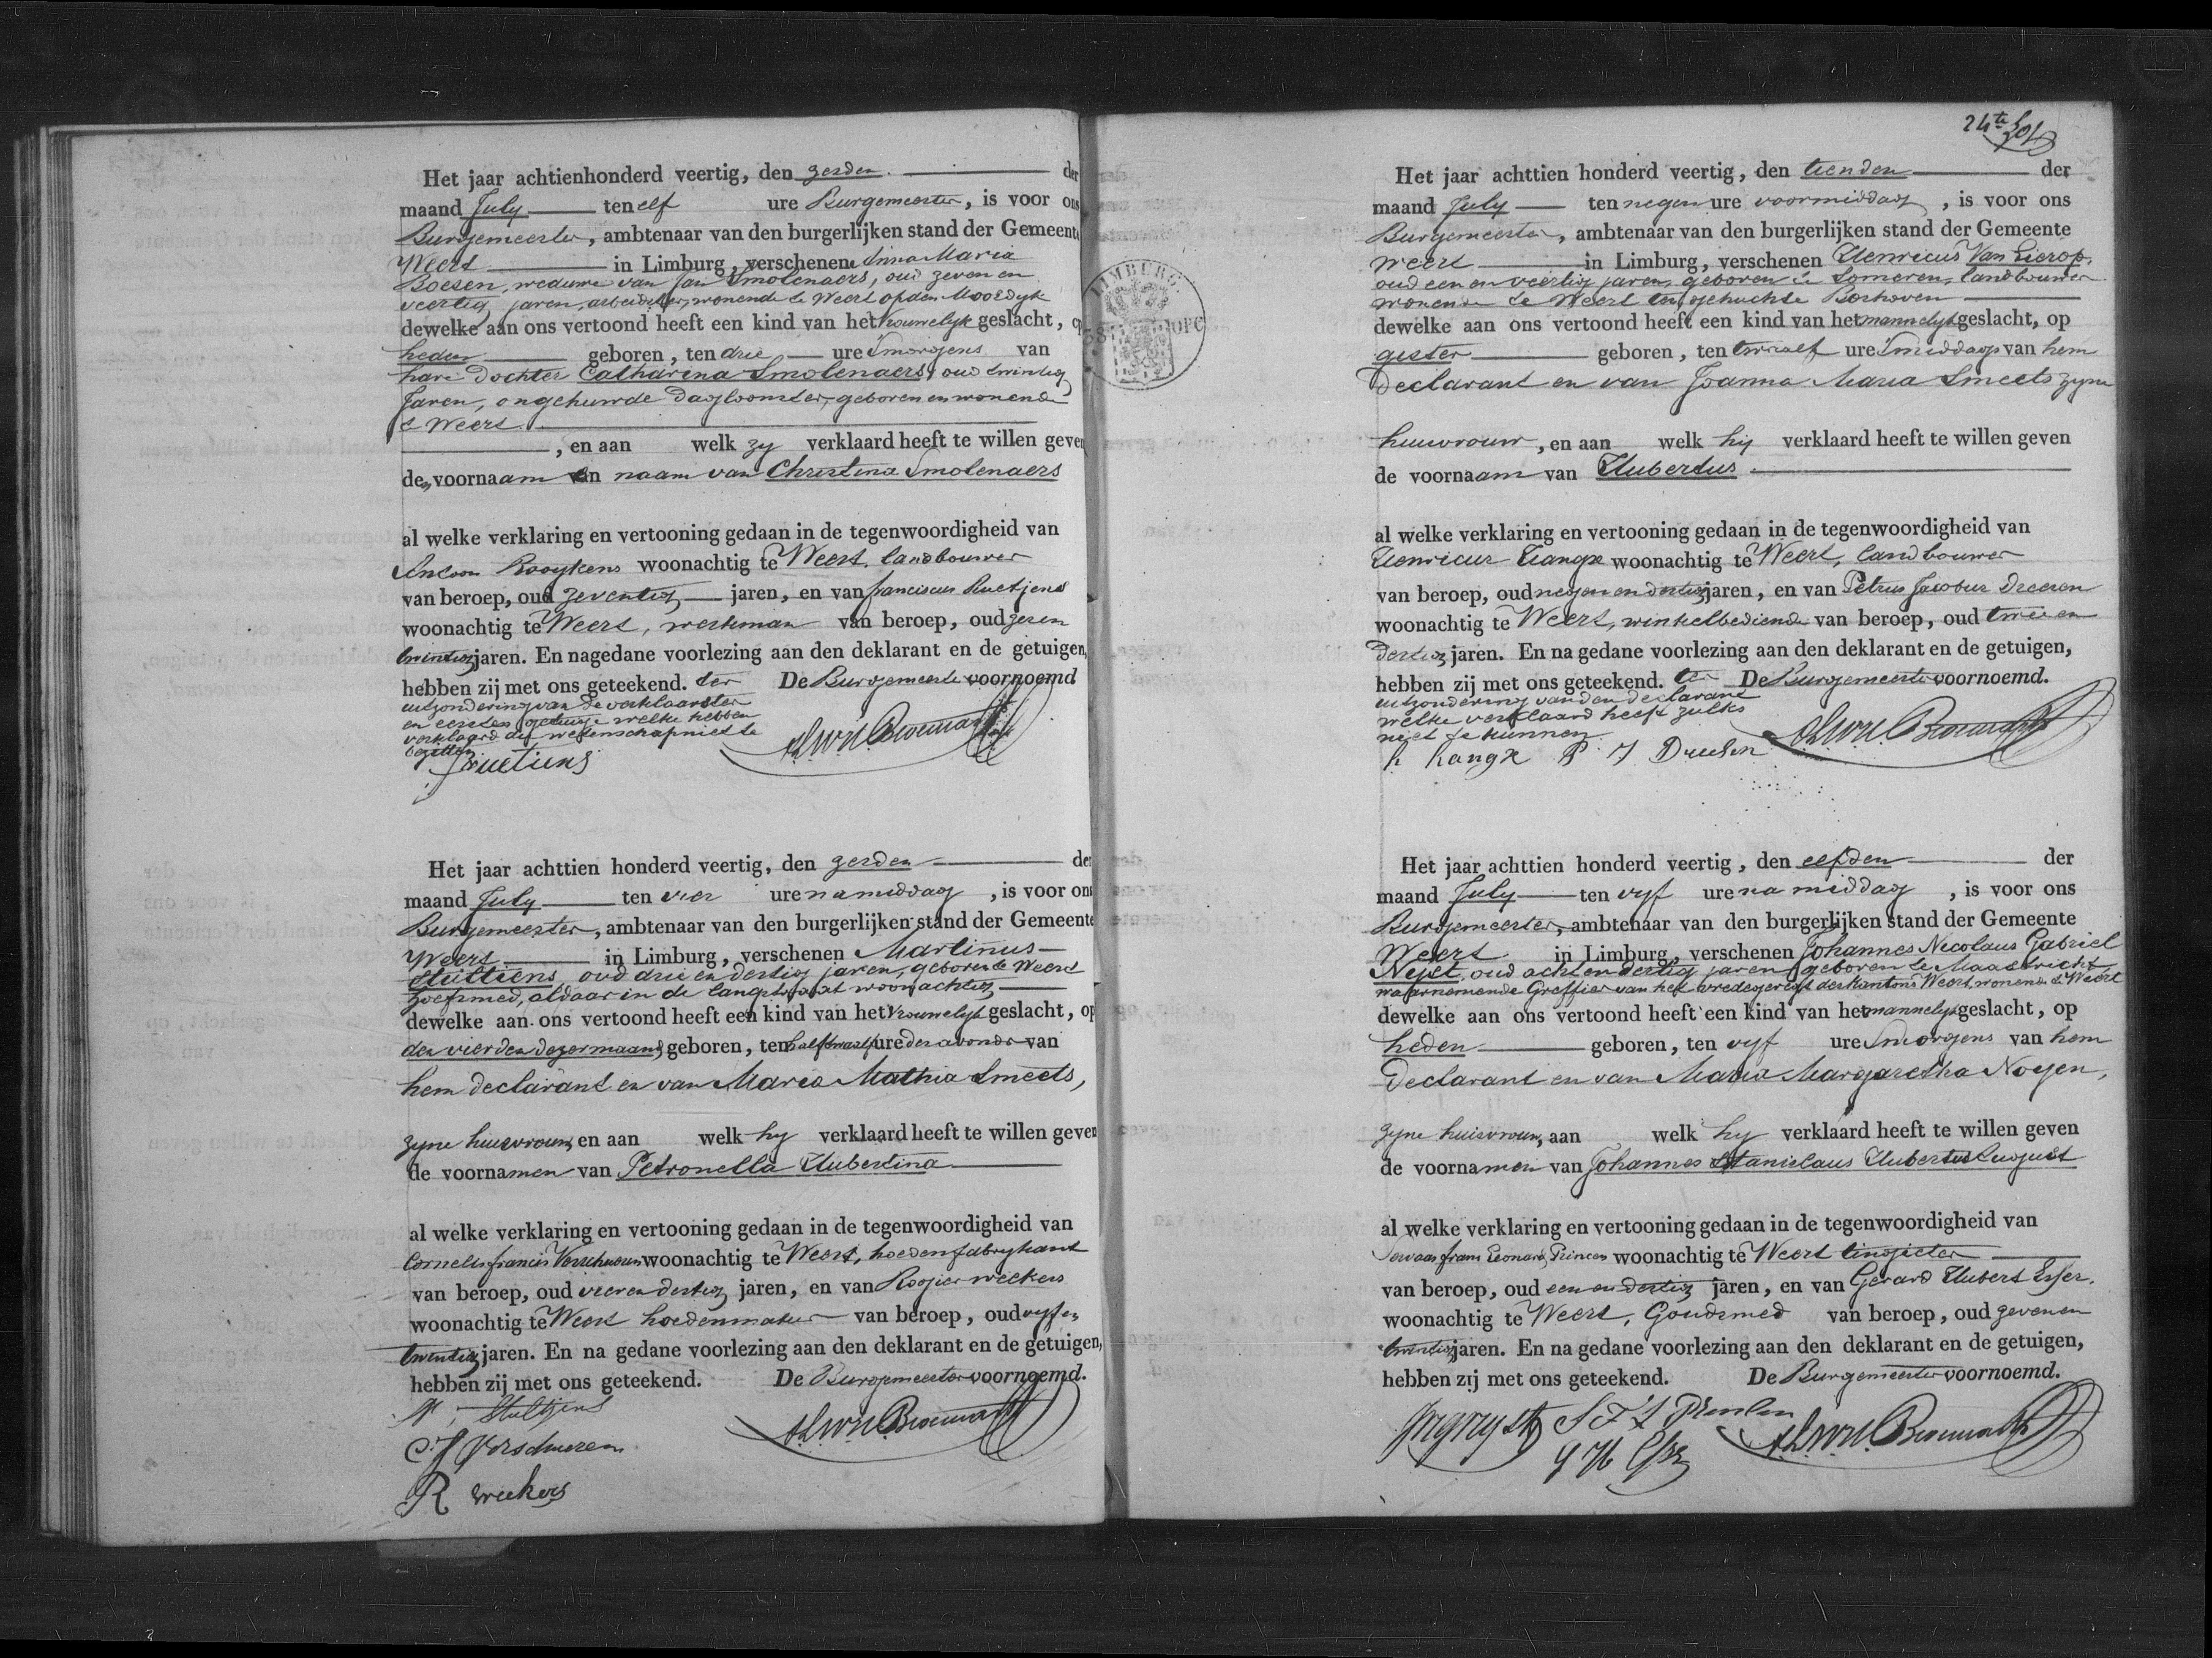 Het jaar achtienhonderd veertig, den zesden der
maand July ten elf ure Burgemeester, is voor ons
Burgemeester, ambtenaar van den burgerlijken stand der Gemeente
Weert in Limburg, verschenen Anna Maria
Boesen, weduwe van Jan Smolenaers, oud zeven en
veertig jaren, arbeidster, wonende te Weert op den Moosdyk
dewelke aan ons vertoond heeft een kind van het vrouwelyk geslacht, op
heden geboren, ten drie ure smorgens van
hare dochter Catharina Smolenaers, oud twintig
jaren, ongehuwde dagloonster, geboren en wonende
te Weert.
, en aan welk zy verklaard heeft te willen geven
den voornaam en naam van Christina Smolenaers
al welke verklaring en vertooning gedaan in de tegenwoordigheid van
Antoon Rooykens woonachtig te Weert, landbouwer
van beroep, oud zeventig jaren, en van franciscus Ruetjens
woonachtig te Weert, werkman van beroep, oud zesen
twintig jaren. En nagedane voorlezing aan den deklarant en de getuigen,
hebben zij met ons geteekend. ter De Burgemeester voornoemd
uitzondering van de verklaarster
en eersten getuige welke hebben
verklaard de wetenschap niet te
bezitten

Het jaar achttien honderd veertig, den zesden der
maand July ten vier ure namiddag, is voor ons
Burgemeester, ambtenaar van den burgerlijken stand der Gemeente
Weert in Limburg, verschenen Martinus
Stultiens, oud drie en dertig jaren, geboren te Weert
hoefsmed, aldaar in de langstraat woonachtig
dewelke aan ons vertoond heeft een kind van het vrouwelyk geslacht, op
den vierden dezer maand, geboren, ten half twaalf ure des avonds van
hem declarant en van Maria Mathia Smeets,
zyne huisvrouw, en aan welk hy verklaard heeft te willen geven
de voornamen van Petronella Hubertina
al welke verklaring en vertooning gedaan in de tegenwoordigheid van
Cornelis francis Verschueren woonachtig te Weert, hoedenfabrykant
van beroep, oud vier en dertig jaren, en van Rogier weekers
woonachtig te Weert hoedenmaker van beroep, oud vyf en
twentig jaren. En na gedane voorlezing aan den deklarant en de getuigen,
hebben zij met ons geteekend. De Burgemeester voornoemd.
M. Stultjens
C. f Verschueren
R weekers

24te
Het jaar achttien honderd veertig, den tienden der
maand July ten negen ure voormiddag, is voor ons
Burgemeester, ambtenaar van den burgerlijken stand der Gemeente
Weert in Limburg, verschenen Henricus Van Lierop,
oud een en veertig jaren, geboren te Someren, landbouwer
wonende te Weert ten gehuchte Boshoven
dewelke aan ons vertoond heeft een kind van het mannelyk geslacht, op
gister geboren, ten twaalf ure smiddags van hem
declarant en van Joanna Maria Smeets zyne
huisvrouw, en aan welk hij verklaard heeft te willen geven
de voornaam van Hubertus
al welke verklaring en vertooning gedaan in de tegenwoordigheid van
Henricus Hangx woonachtig te Weert, landbouwer
van beroep, oud negen en dertig jaren, en van Petrus Jacobus Dreesen
woonachtig te Weert, winkelbediende van beroep, oud twee en
dertig jaren. En na gedane voorlezing aan den deklarant en de getuigen,
hebben zij met ons geteekend. ter De Burgemeester voornoemd.
uitzondering van den declarant
welke verklaard heeft zulks
niet te kunnen
h hangx P J Dreesen

Het jaar achttien honderd veertig, den elfden der
maand July ten vyf ure namiddag, is voor ons
Burgemeester, ambtenaar van den burgerlijken stand der Gemeente
Weert in Limburg, verschenen Johannes Nicolaus Gabriel
Nyst, oud acht en dertig jaren, geboren te Maastricht,
waarnemende Greffier van het vredegeregt des kantons Weert, wonende te Weert
dewelke aan ons vertoond heeft een kind van het mannelyk geslacht, op
heden geboren, ten vyf ure smorgens van hem
declarant en van Maria Margaretha Noyen,
zyne huisvrouw, aan welk hy verklaard heeft te willen geven
de voornamen van Johannes Stanislaus Hubertus August
al welke verklaring en vertooning gedaan in de tegenwoordigheid van
Servaas frans Leonard Princen woonachtig te Weert tingieter
van beroep, oud een en dertig jaren, en van Gerard Hubert Esser,
woonachtig te Weert, Goudsmed van beroep, oud zeven en
twintig jaren. En na gedane voorlezing aan den deklarant en de getuigen,
hebben zij met ons geteekend. De Burgemeester voornoemd.